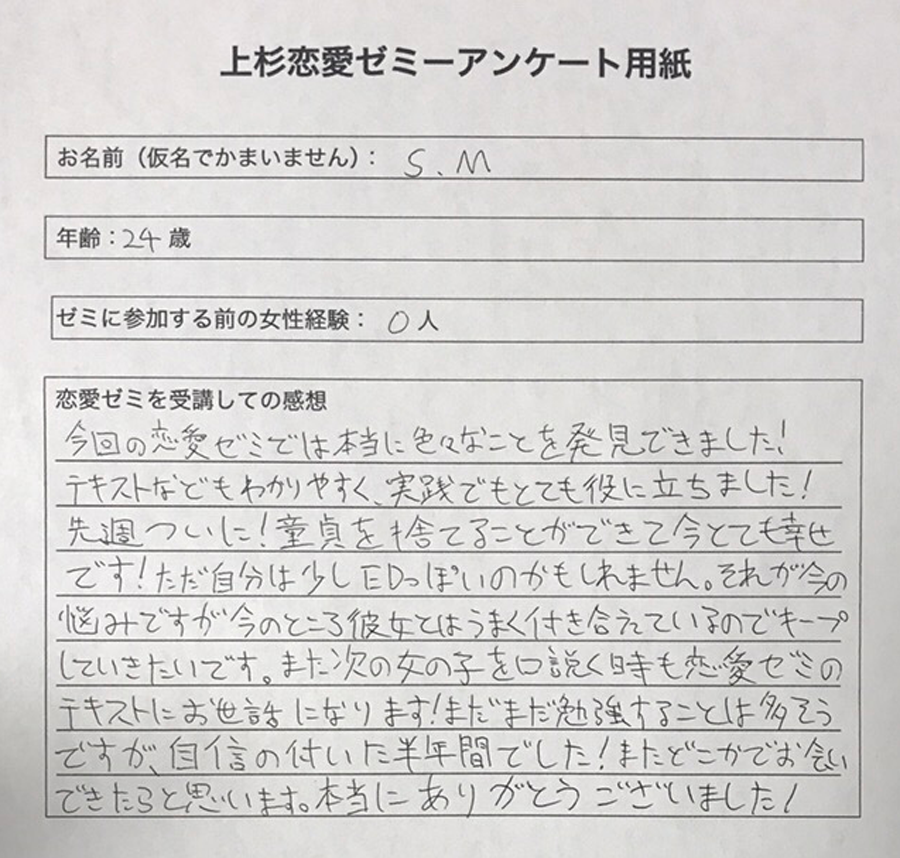 上杉恋愛ゼミーアンケート用紙
お名前（仮名でかまいません）： S.M
年齢：24歳
ゼミに参加する前の女性経験： 0人
恋愛ゼミを受講しての感想
今回の恋愛ゼミでは本当に色々なことを発見できました！
テキストなどもわかりやすく、実践でもとても役に立ちました！
先週ついに！童貞を捨てることができて今とても幸せ
です！ただ自分は少しEDっぽいのかもしれません。それが今の
悩みですが今のところ彼女とはうまく付き合えているのでキープ
していきたいです。また次の女の子を口説く時も恋愛ゼミの
テキストにお世話になります！まだまだ勉強することは多そう
ですが、自信の付いた半年間でした！またどこかでお会い
できたらと思います。本当にありがとうございました！